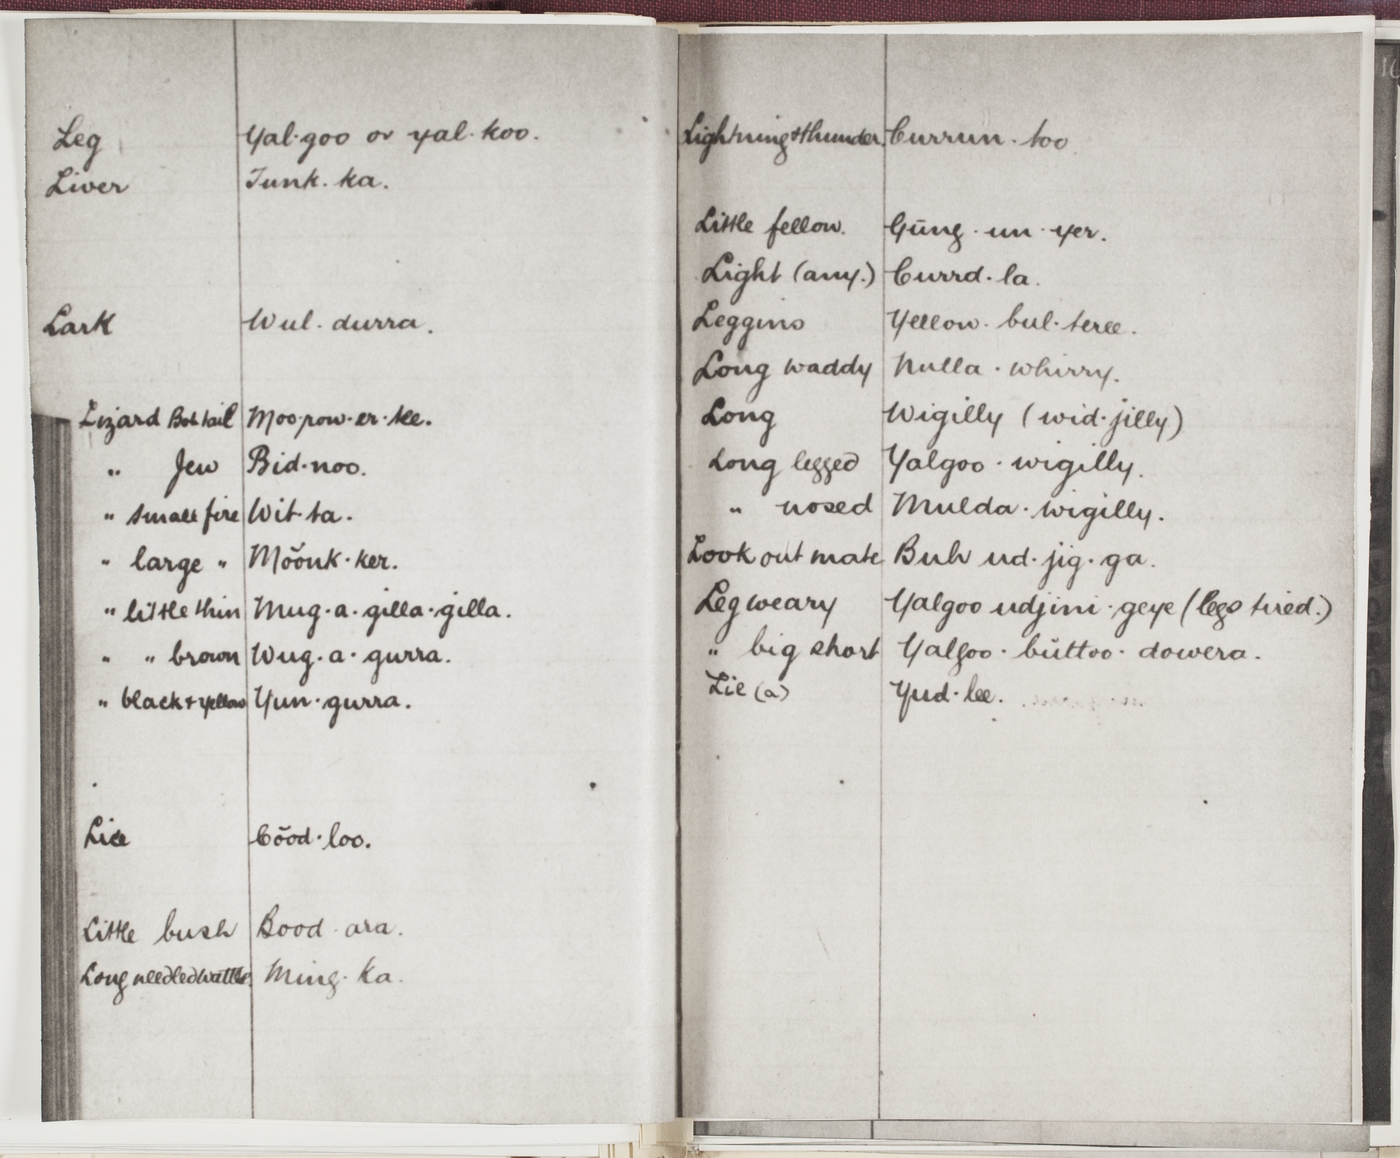 Leg Yal·goo or yal·koo.
Liver Tunk·ka.
Lark Wul·durra.
Lizard Bob tail Moo·pow·er·tee.
" Jew Bid·noo.
" small fire Wit·ta.
" large " Mŏŏnk·ker.
" little thin Mug·a·gilla·gilla.
" " brown Wug·a·gurra.
" black & yellow Yun·gurra.
Lice Cŏod·loo.
Little bush Bood·ara.
Long needled wattle. Ming·ka.
Lightning & thunder. Currun·too
Little fellow. Gūng·un·yer.
Light (any.) Currd·la.
Leggins Yellow·bul·teree.
Long waddy Nulla·whirry.
Long Wigilly (wid·jilly)
Long legged Yalgoo·wigilly.
" nosed Mulda·wigilly.
Look out mate Buh ud·jig·ga.
Leg weary Yalgoo udjini·geye (legs tired.)
" big short Yalgoo·būttoo·dowera.
Lie (a) Yud·lee.